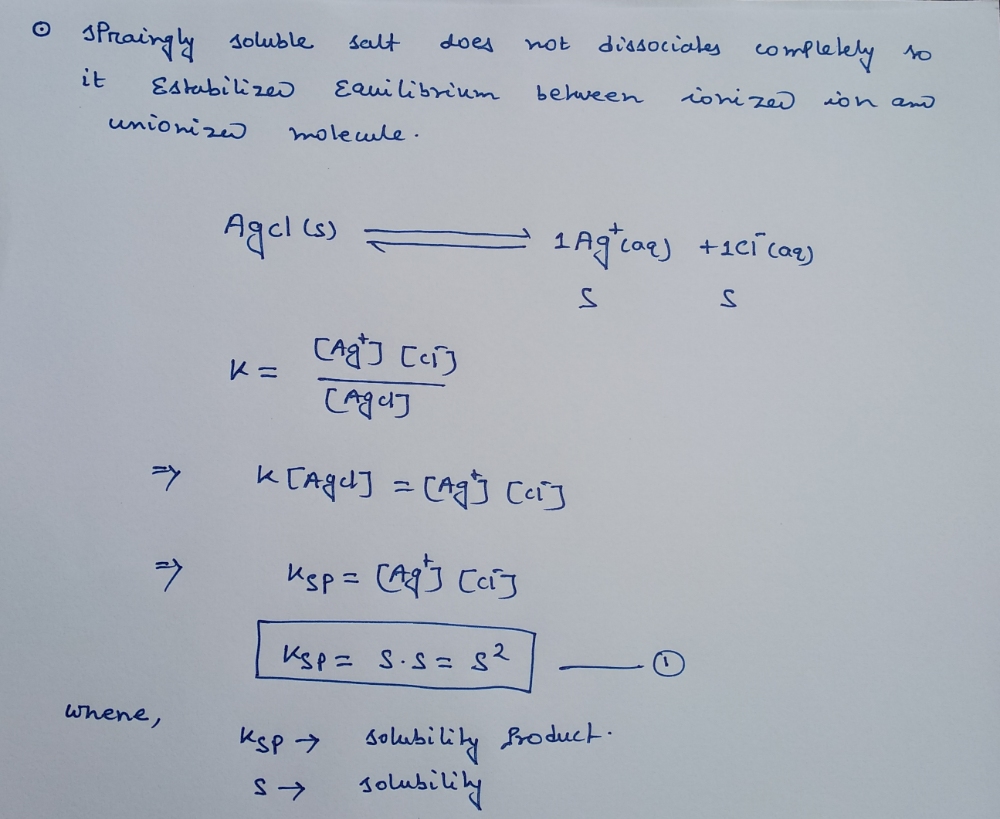 ⊙ sPraingly soluble salt does not dissociates completely so
it Estabilized Equilibrium between ionized ion and
unionized molecule.
AgCl (s) ⇌ 1Ag⁺(aq) + 1Cl⁻(aq)
S S
K = [Ag⁺] [Cl⁻] / [AgCl]
⇒ K [AgCl] = [Ag⁺] [Cl⁻]
⇒ KSP = [Ag⁺] [Cl⁻]
KSP = S.S = S² —— ①
where,
KSP → solubility Product.
S → solubility